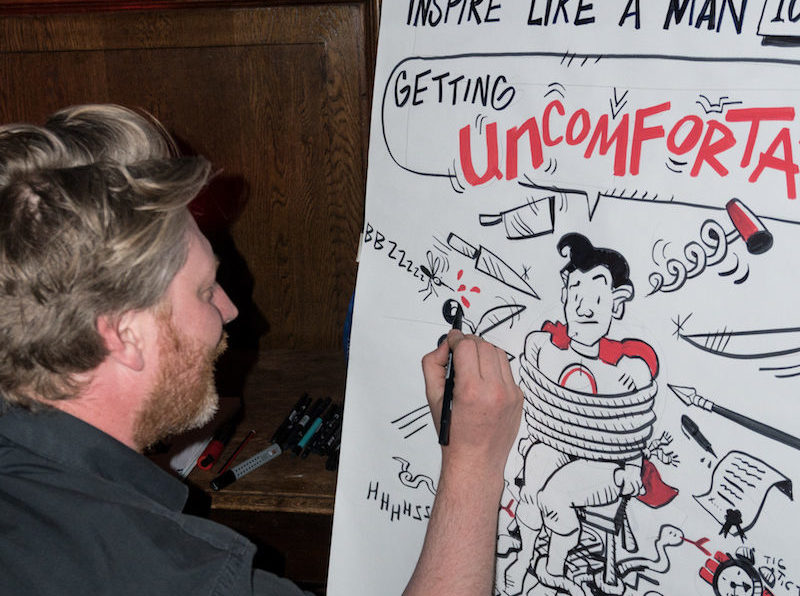 INSPIRE LIKE A MAN
GETTING
UNCOMFORTA
BBZZZZZ
HHHHSZZ
TIC
TIC